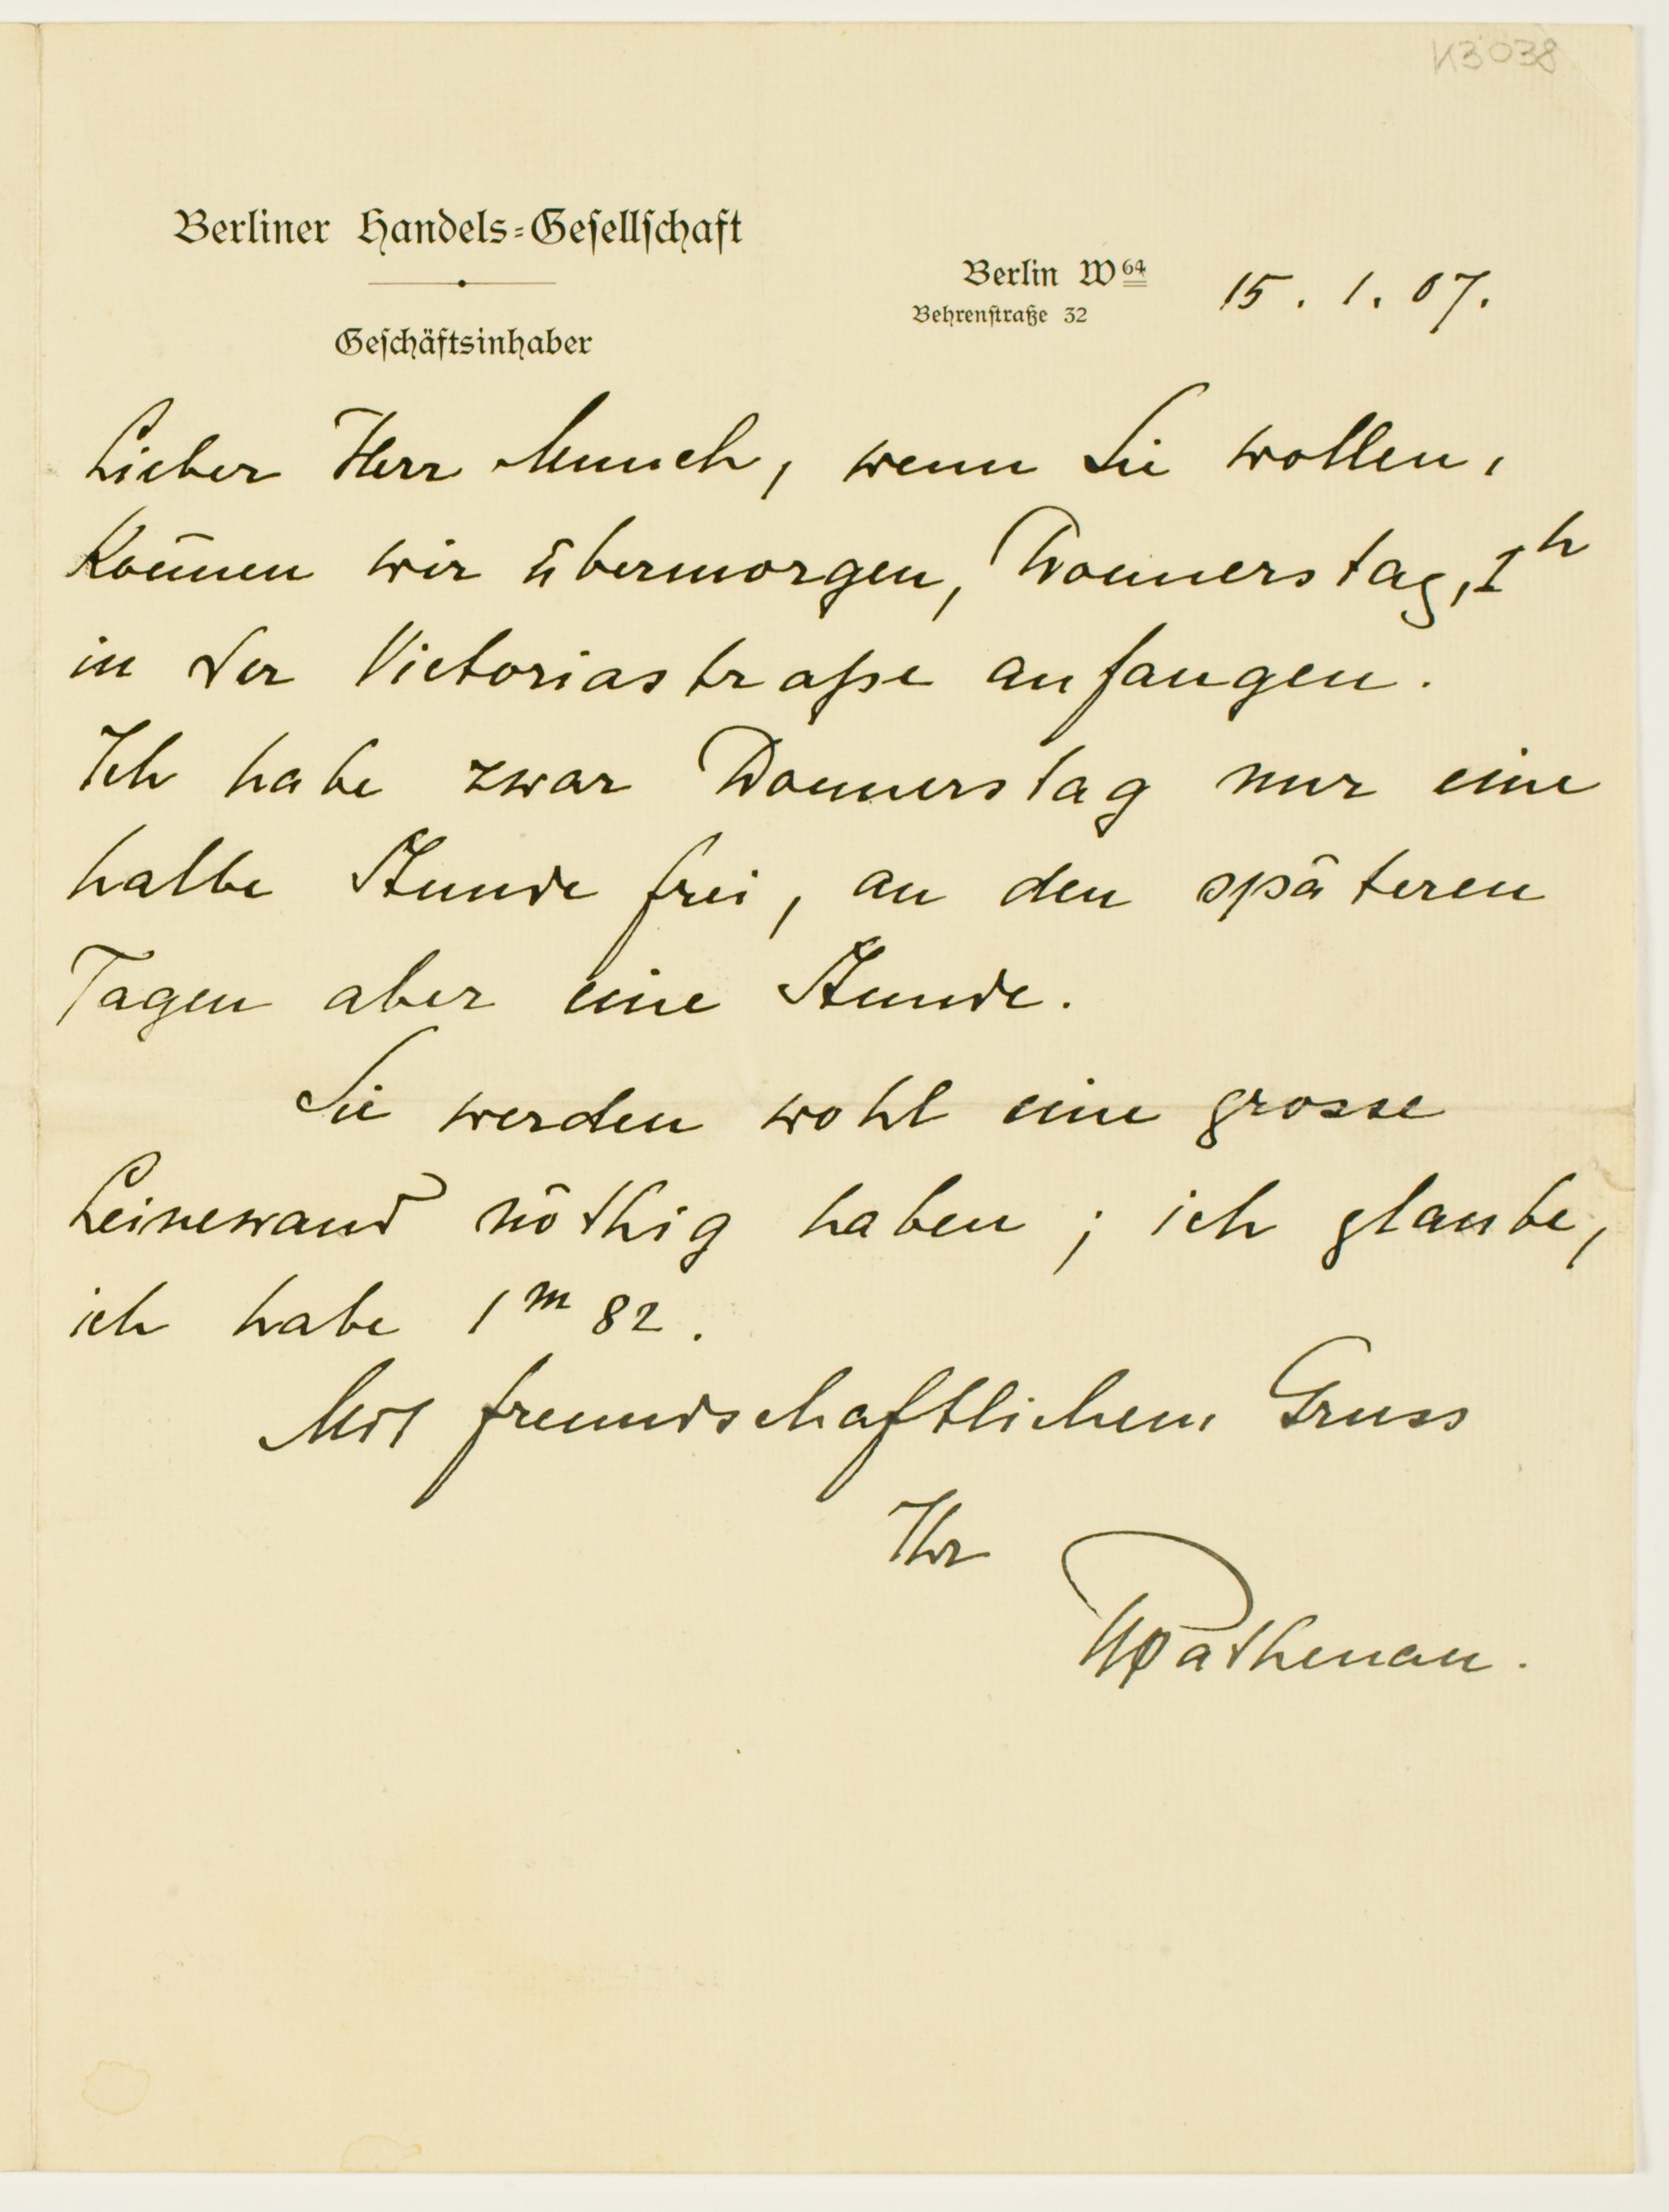 K3038
Berliner Handels-Gesellschaft
Geschäftsinhaber
Berlin W 64
Behrenstraße 32
15. 1. 07.
Lieber Herr Munch, wenn Sie wollen,
können wir übermorgen, Donnerstag, 1h
in der Victoriastraße anfangen.
Ich habe zwar Donnerstag nur eine
halbe Stunde frei, an den späteren
Tagen aber eine Stunde.
Sie werden wohl eine grosse
Leinewand nöthig haben; ich glaube,
ich habe 1m 82.
Mit freundschaftlichem Gruss
Ihr
WRathenau.